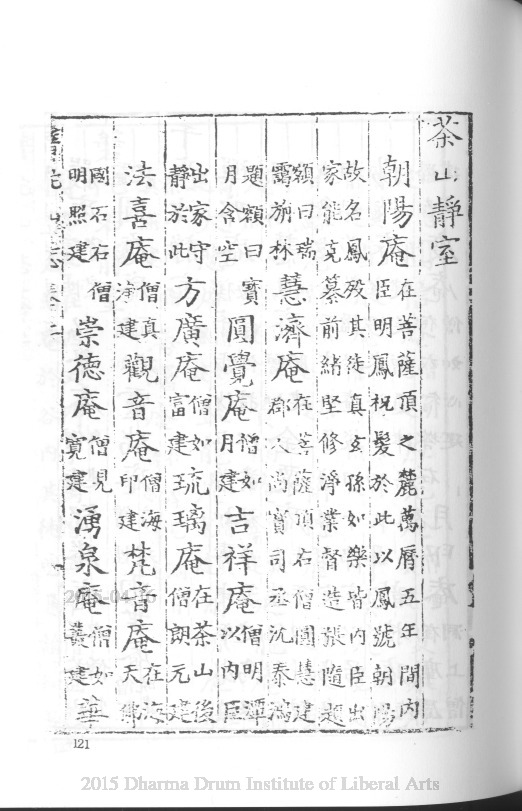 茶山靜室
朝陽庵在菩薩頂之麓萬曆五年間內臣明鳳祝髮於此以鳳號朝陽
故名鳳歿其徒真玄孫如樂皆內臣出家能克纂前緒堅修淨業督造張隨題
額曰瑞靄旃林 慧濟庵在菩薩頂右僧圓慧建郡人尚寶司丞沈泰鴻
題額曰寶月含空 圓覺庵僧如月建 吉祥庵僧明潭以內臣
出家守靜於此 方廣庵僧如富建 琉璃庵在茶山後僧朗元建
法喜庵僧真淨建 觀音庵僧海印建 梵音庵在海天佛
國石右僧明照建 崇德庵僧見寬建 湧泉庵僧如建 華
121
2015 Dharma Drum Institute of Liberal Arts